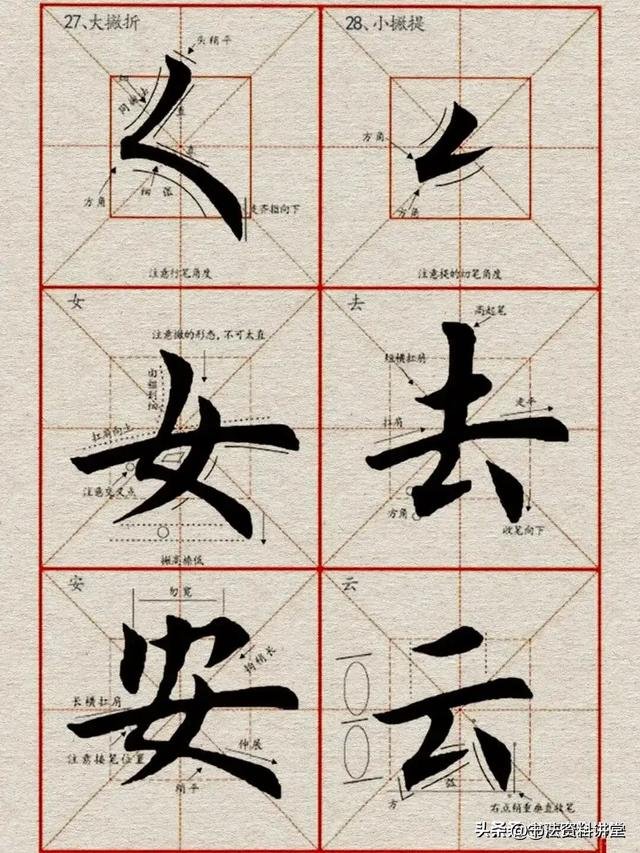 27、大撇折
头稍平
直
直
方角
走齐指向下
注意行笔角度
28、小撇提
方角
方角
注意提的切笔角度
女
注意撇的形态，不可太直
由粗到细
扛肩向上
注意交叉点
撇高捺低
女
去
高起笔
短横扛肩
走平
扛肩
方角
收笔向下
去
安
勿宽
钩稍长
长横扛肩
注意接笔位置
伸展
稍平
安
云
方
弧
右点稍重垂直收笔
云
头条 @书法资料讲堂